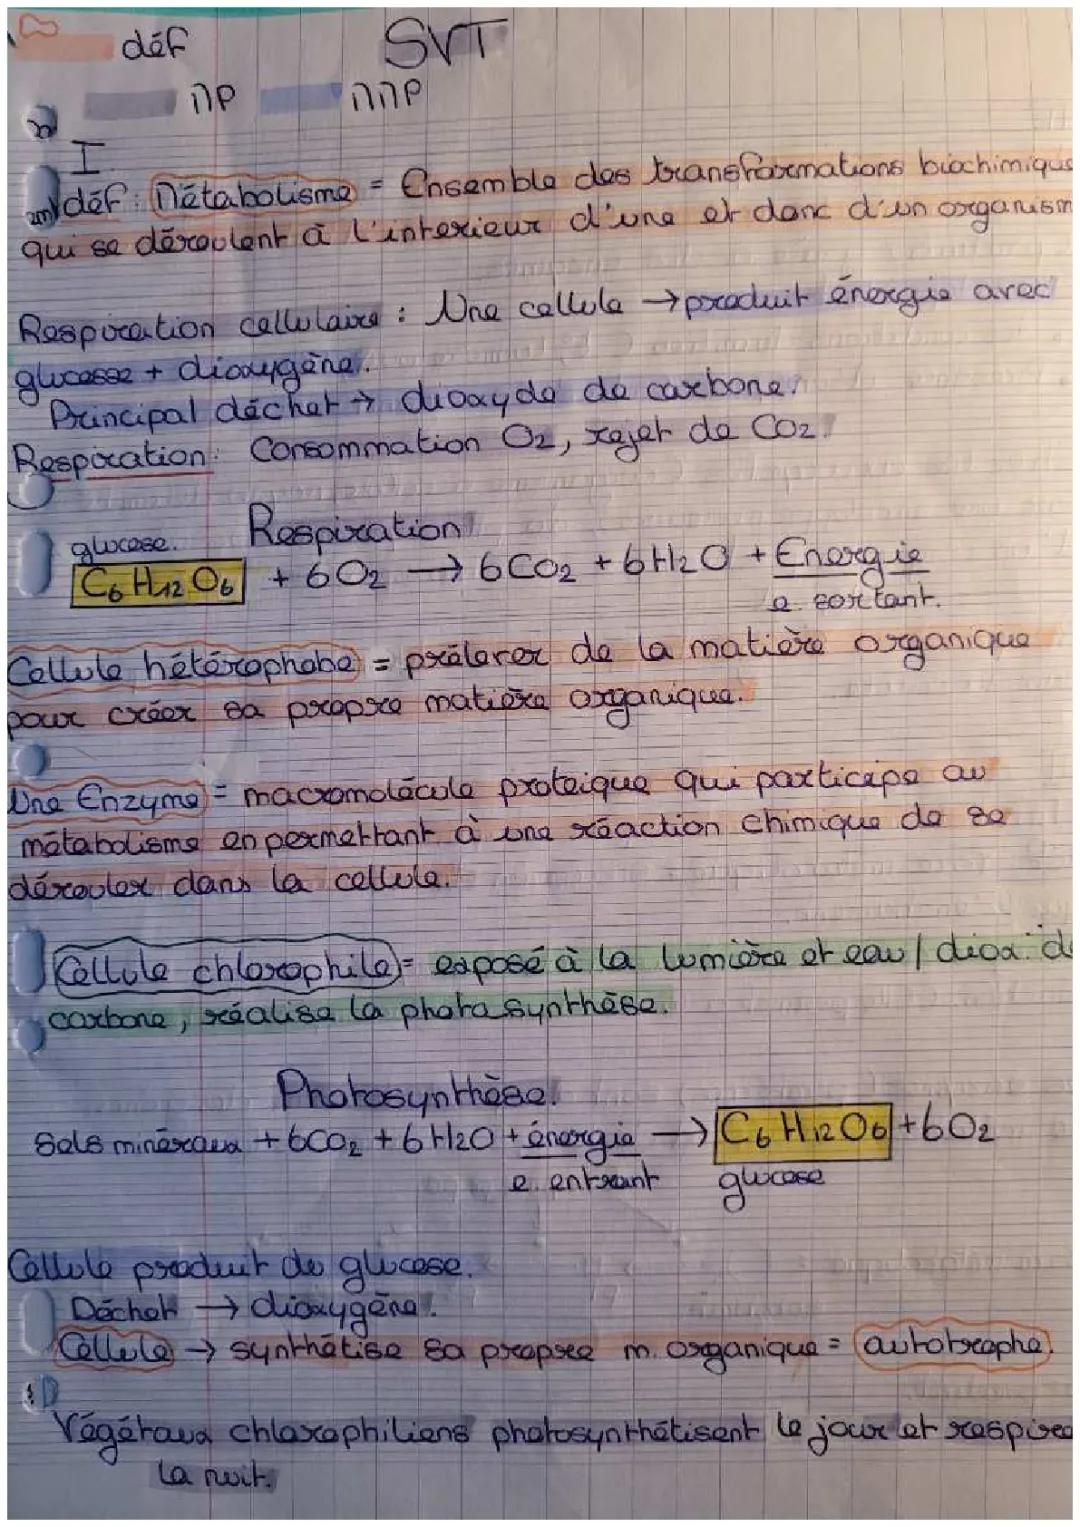 déf SVT
ПP ППP
I
déf : Métabolisme = Ensemble des transformations biochimique
qui se déroulent à l'interieur d'une et donc d'un organism
Respiration cellulaire : Une cellule → produit énergie avec
glucose + dioxygène.
Principal déchet → dioxyde de carbone.
Respiration : Consommation O2, rejet de CO2.
Respiration
glucose.
C6 H12 O6 + 6O2 → 6CO2 + 6H2O + Énergie
e sortant.
Cellule hétérophobe = prélever de la matière organique
pour créer sa propre matière organique.
Une Enzyme = macromolécule proteique qui participe au
métabolisme en permettant à une réaction chimique de se
dérouler dans la cellule.
Cellule chlorophile = exposé à la lumière et eau / diox. d
carbone, réalise la photosynthèse.
Photosynthèse.
Sels minéraux + 6CO2 + 6H2O + énergie → C6 H12 O6 + 6O2
e. entrant glucose
Cellule produit du glucose.
Déchet → dioxygène.
Cellule → synthétise sa propre m. organique = autotrophe.
Végétaux chlorophiliens photosynthétisent le jour et respire
la nuit.